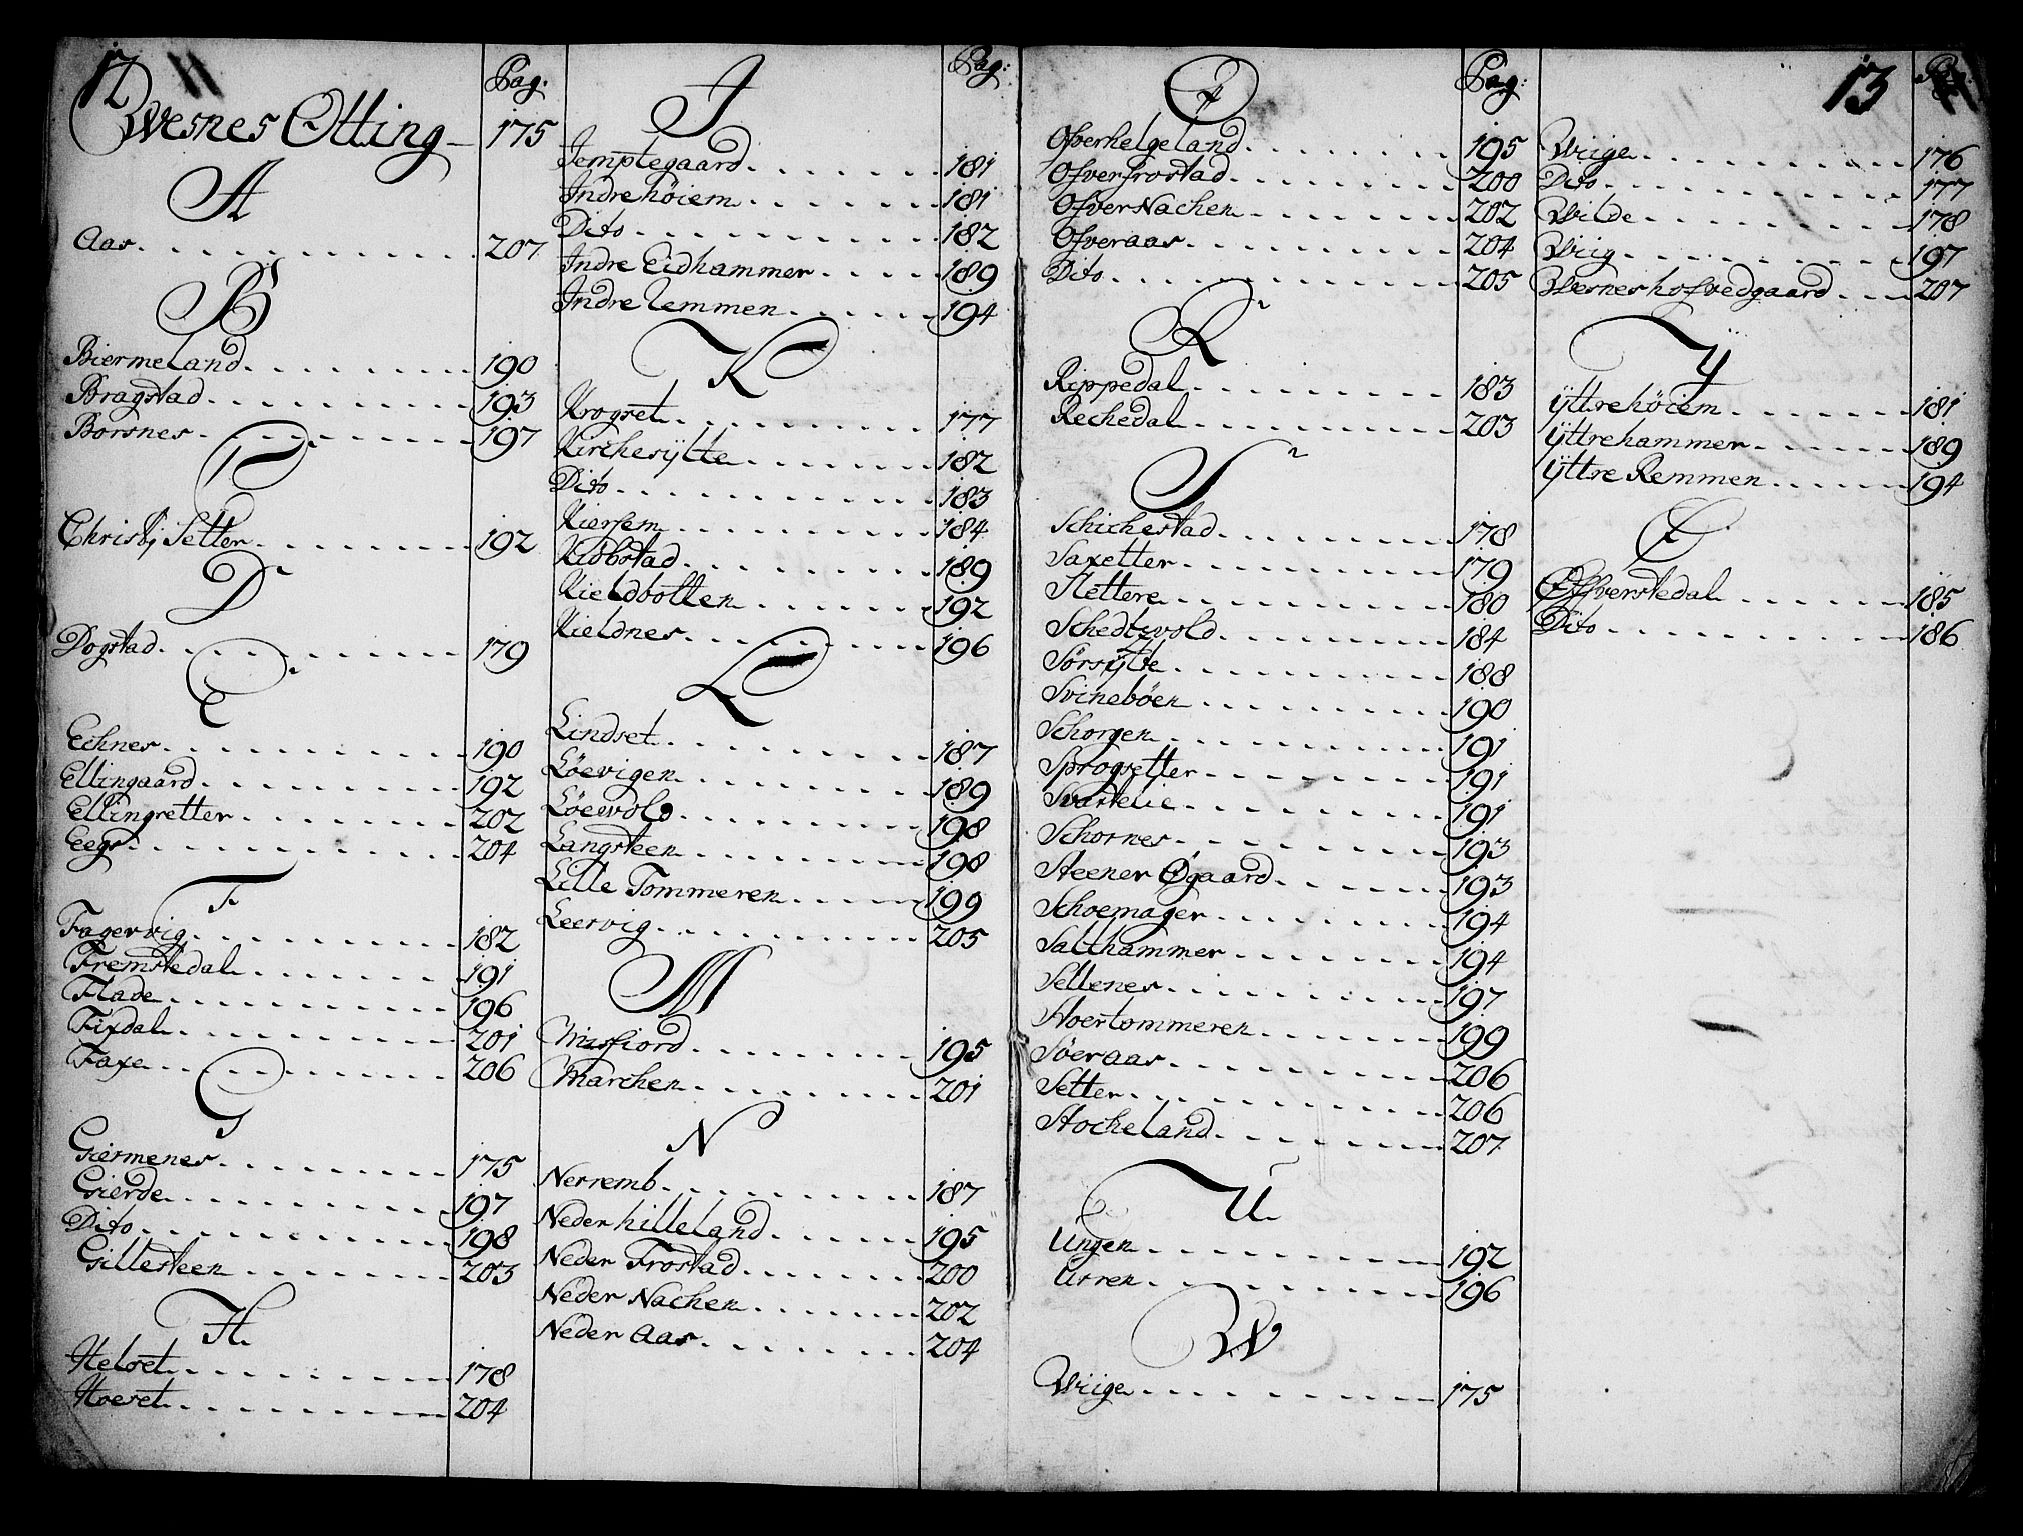 12 11
Pag:
Wesnes Otting 175
A
Aas 207
B
Biermeland 190
Bragstad 193
Borsnes 197
C
Christi Setter 192
D
Dogstad 179
E
Echnes 190
Ellingaard 192
Ellingsetter 202
Eegs 204
F
Fagervig 182
Fremstedal 191
Flade 196
Fixdal 201
Faxe 206
G
Giermenes 175
Gierde 197
Dito 198
Gillesteen 203
H
Helset 178
Hoeset 204
Pag:
I
Jemptegaard 181
Indrehöiem 181
Dito 182
Indre Eidhammer 189
Indre Remmen 194
K
Krogset 177
Kirchesÿlte 182
Dito 183
Kiersem 184
Kidbstad 189
Kieldbotten 192
Kieldnes 196
L
Lindset 187
Löevigen 189
Löevold 198
Langsteen 198
Lille Tommeren 199
Leervig 205
M
Misfiord 195
Marchen 201
N
Nerremb 187
Neder hilleland 195
Neder Frostad 200
Neder Nachen 202
Neder Aas 204
Pag:
O
Ofverhelgeland 195
Ofverfrostad 200
Ofver Nachen 202
Ofveraas 204
Dito 205
R
Rippedal 183
Rechedal 203
S
Schichestad 178
Saxetter 179
Slettere 180
Schedtzvold 184
Sörsÿlte 188
Svineböen 190
Schorgen 191
Sprogsetter 191
Svartelie 191
Schornes 193
Steener Øgaard 193
Schoemager 194
Salthammer 194
Sellenes 197
Stoertommeren 199
Söeraas 206
Setter 206
Stocheland 207
U
Ungen 192
Urren 196
W
Wiige 175
13
Pag:
Wiige 176
Dito 177
Wilde 178
Wiig 197
Wesneshofvedgaard 207
Ÿ
Ÿttrehöiem 181
Ÿttrehammer 189
Ÿttre Remmen 194
Ø
Øfverstedal 185
Dito 186